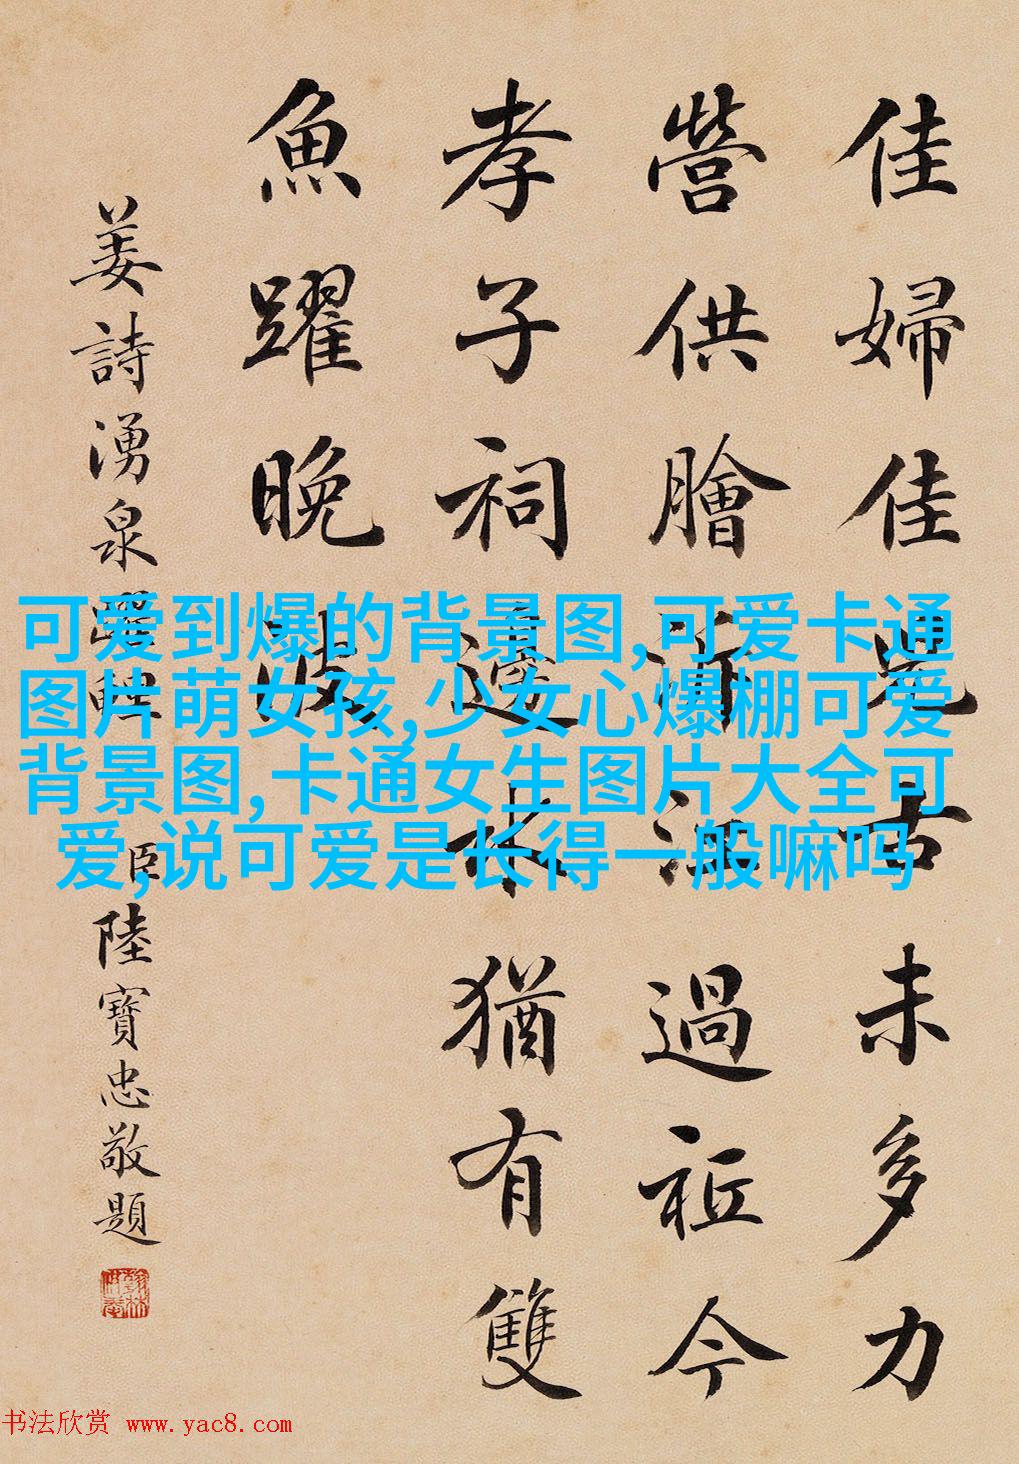 佳婦佳兒古未多力
營供膾江過祗今
孝子祠邊水猶有雙
魚躍晚波
姜詩湧泉躍鯉 臣陸寶忠敬題
可爱到爆的背景图,可爱卡通
图片萌女孩,少女心爆棚可爱
背景图,卡通女生图片大全可
爱,说可爱是长得一般嘛吗
书法欣赏 www.yac8.com